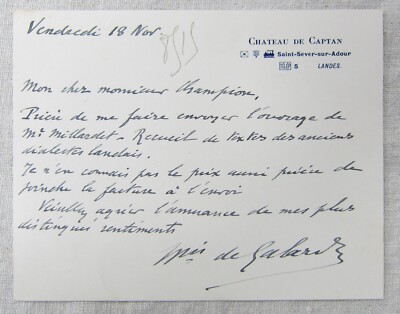 Vendredi 18 Nov
CHATEAU DE CAPTAN
Saint-Sever-sur-Adour
5 LANDES.
Mon cher monsieur Champion,
Prière de me faire envoyer l'ouvrage de
Mr Millardet - Recueil de textes des anciens
dialectes landais.
Je n'en connais pas le prix aussi prière de
joindre la facture à l'envoi
Veuillez agréer l'assurance de mes plus
distingués sentiments
de Galard